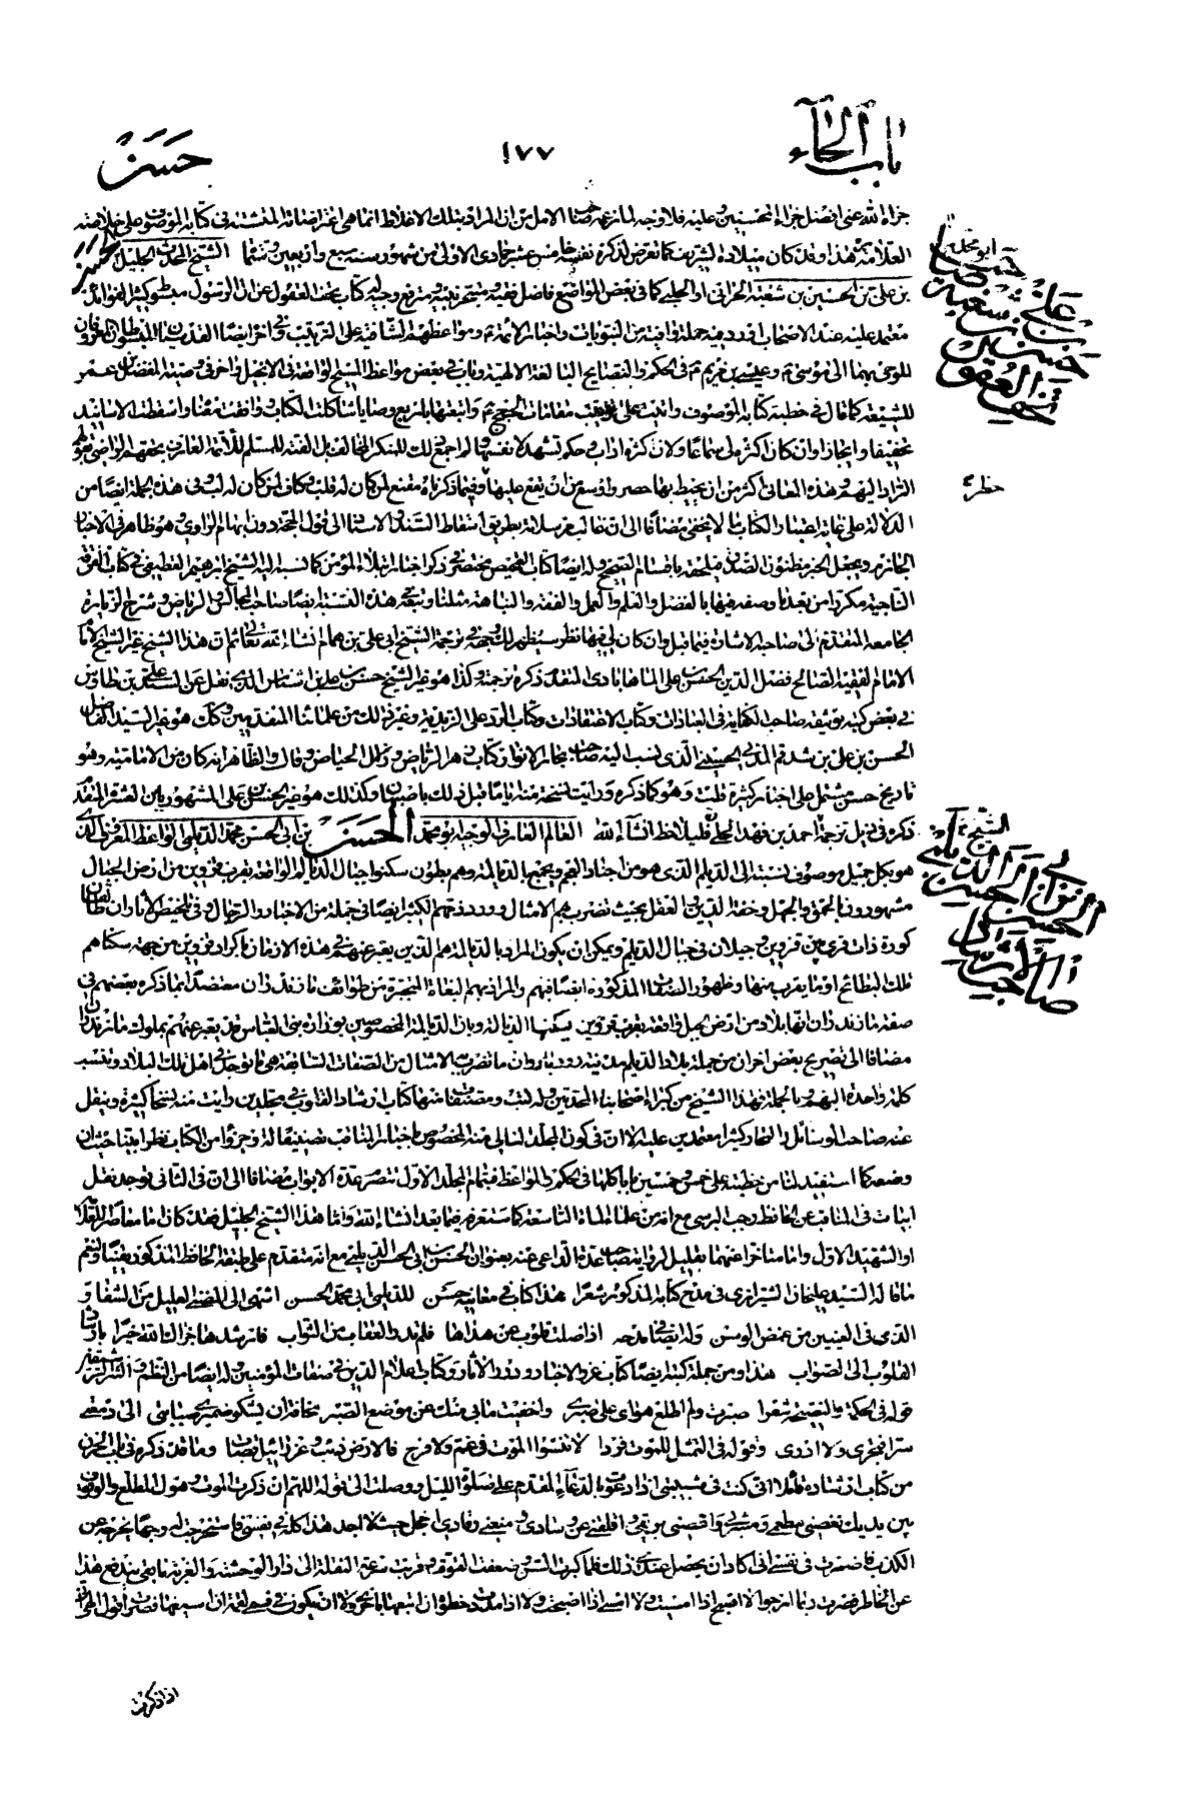 باب الحاء
١٧٧
حسن
جزاه الله عنى افضل جزاء المحسنين وعليه فلا وجه لما زعمه صاحب الامل من ان المراد بتلك الاغلاط انما هى اعتراضاته المنتشرة فى كتابه الموضوع على خلاصة
العلامة هذا وقد كان ميلاده الشريف كما تعرض لذكره نفسه خامس عشر جمادى الاولى من شهور سنة سبع واربعين وستمائة الشيخ المحدث الجليل الحسن
بن على بن الحسين بن شعبة الحرانى او الحلبى كما فى بعض المواضع فاضل فقيه ومتبحر نبيه ومترفع وجيه له كتاب تحف العقول عن ال الرسول مبسوط كثير الفوائد
معتمد عليه عند الاصحاب اورد فيه جملة وافية من النبويات واخبار الائمة ومواعظهم الشافية على الترتيب وفى اخره ايضا القدسيان المبسوطان المعروفان
الموحى بهما الى موسى وعيسى بن مريم فى الحكم والنصايح البالغة الالهية وباب فى بعض مواعظ المسيح الواقعة فى الانجيل واخر فى وصية المفضل بن عمر
للشيعة كما قال فى خطبة كتابه الموصوف واتيت على ترتيب مقامات الحجج واتبعتها باربع وصايا شاكلت الكتاب ووافقت معناه واسقطت الاسانيد
تخفيفا وايجازا وان كان اكثره لى سماعا ولان اكثره اداب وحكم تشهد لانفسها ولم اجمع ذلك للمنكر المخالف بل الفته للمسلم للائمة العارف بحقهم الراضى بقولهم
الراد اليهم وهذه المعانى اكثر من ان يحيط بها حصر واوسع من ان يقع عليها وفيما ذكرناه مقنع لمن كان له قلب وكاف لمن كان له لب وفى هذه الجملة ايضا من
الدلالة على غاية اعتبار الكتاب ما لا يخفى مضافا الى ان غالب مرسلاته بطريق اسقاط السند والاسناد الى قول الحجة دون ابهام الراوى وهو ظاهر فى الاخبار
الجازم ويجعل الخبر مظنون الصدق فيلحقه باقسام الصحيح وله ايضا كتاب التمحيص مختصر فى ذكر اخبار ابتلاء المؤمن كما نسبه اليه الشيخ ابرهيم القطيفى فى كتاب الفرقة
الناجية مكررا من بعد ما وصفه فيها بالفضل والعلم والعمل والفقه والنباهة مثلنا وتبعه فى هذه النسبة ايضا صاحب المجالس والرياض وشرح الزيارة
الجامعة المتقدم الى صاحبه الاشارة فيما قبل وان كان لى فيها نظر سيظهر لك وجهه فى ترجمة الشيخ ابى على بن همام انشاء الله تعالى ثم ان هذا الشيخ غير الشيخ الامام
الفقيه الصالح فضل الدين الحسن بن على الماهابادى المتقدم ذكره ترجمته وكذا هو غير الشيخ حسن بن على بن اشناس الذى نقل عن السيد على بن طاوس
فى بعض كتبه توثيقه صاحب الكفاية فى العبادات وكتاب الاعتقادات وكتاب الرد على الزيدية وغير ذلك من علمائنا المتقدمين وكذلك هو غير السيد الفاضل
الحسن بن على بن شدقم المدنى الحسينى الذى نسب اليه صاحب بحار الانوار كتاب زهر الرياض وزلال الحياض وقال والظاهر انه كان من الامامية وهو
تاريخ حسن مشتمل على اخبار كثيرة قلت وهو كما ذكره ورايت نسخة منه ايام ما قبل ذلك باصبهان وكذلك هو غير الحسن بن على المشهور بابن العشرة المتقدم
ذكره فى ذيل ترجمة احمد بن فهد الحلى قليلاحظ انشاء الله العالم العارف الوجيه ابو محمد الحسن بن ابى الحسن محمد الديلمى الواعظ المعروف الذى
هو بكل جميل موصوف نسبته الى الديلم الذى هو من اجناد العجم ويجمع الديالمة وهم بطون سكنوا جبال الديالمة الواقعة بقرب قزوين من ارض الجبال
مشهورون بالحمق والجهل وخفة الدين والعقل بحيث تضرب بهم الامثال وورد ذمهم الكثير ايضا فى جملة من الاخبار والرجال وفى تلخيص الاثار ان طالقان
كورة ذات قرى بين قزوين وجيلان فى جبال الديلم ويمكن ان يكون المراد بالديالمة هم الذين يعبر عنهم فى هذه الازمان باكراد قزوين من جهة سكناهم
تلك البطائح او ما يقرب منها وظهور الصفات المذكورة ايضا فيهم او المراد بهم البغاة المتجبرة من طوائف مازندران معتضدا بما ذكره بعضهم فى
صفة مازندران انها بلاد من ارض الجبل واقعة بقرب قزوين يسكنها الديالمة وبان الديالمة المخصوصين بوزارة بنى العباس قد يعبر عنهم بملوك مازندران
مضافا الى تصريح بعض اخر ان من جملة بلاد الديلم مدينة رودبار وان ما تضرب الامثال من الصفات السابقة هى ما توجد فى اهل تلك البلاد وتنسب
كلمة واحدة اليهم وبالجملة فهذا الشيخ من كبراء اصحابنا المحدثين وله كتب ومصنفات منها كتاب ارشاد القلوب فى مجلدين رايت منه نسخا كثيرة وينقل
عنه صاحب الوسائل والبحار كثيرا معتمدين عليه الا ان فى كون المجلد الثانى منه المخصوص باخبار المناقب تصنيفا له او جزءا من الكتاب نظرا بينا حيث ان
وضعه كما استفيد لنا من خطبته على خمس وخمسين بابا كلها فى الحكم والمواعظ فبتمام المجلد الاول تنصرم عدة الابواب مضافا الى ان فى الثانى توجد نقل
ابيات فى المناقب عن الحافظ رجب البرسى مع انه من علماء الماة التاسعة كما ستعرفه فيما بعد انشاء الله واما هذا الشيخ الجليل فقد كان اما معاصرا للعلامة
او الشهيد الاول واما متاخرا عنهما بقليل لرواية صاحب عدة الداعى عنه بعنوان الحسن بن ابى الحسن الديلمى مع انه متقدم على طبقة الحافظ المذكور يقينا ونعم
ما قاله السيد عليخان الشيرازى فى مدح كتابه المذكور شعرا هذا كتاب فى معانيه حسن للديلمى ابى محمد الحسن اشهى الى المضنى العليل من الشفا و
الذى فى العينين من غمض الوسن وله ايضا فى مدحه اذا ضلت قلوب عن هداها فلم تدر العقاب من الثواب فارشدها جزاك الله خيرا بارشاد
القلوب الى الصواب هذا ومن جملة كتبه ايضا كتاب غرر الاخبار ودرر الاثار وكتاب اعلام الدين فى صفات المؤمنين وله ايضا من النظم
قوله فى الحكمة والنصيحة شعرا صبرت ولم اطلع هواى على صبرى واخفيت ما بى منك عن موضع الصبر مخافة ان يشكو ضميرى صبابتى الى دمعتى
سرا فتجرى ولا ادرى وقوله فى التمثل للموت فردا لا تنسوا الموت فى غم ولا فرح فالارض ذئب وعزرائيل قصاب ومما قد ذكره فى باب الحزن
من كتاب ارشاده قائلا انى كنت فى شبيبتى اذا دعوت بالدعاء المقدم على صلوة الليل ووصلت الى قوله اللهم ان ذكرت الموت وهول المطلع والوقوف
بين يديك نغصنى مطعمى ومشربى واغصنى بريقى واقلقنى عن وسادى ومنعنى رقادى اخجل حيث لا اجد هذا كله فى نفسى فاستخرجت له وجها يخرجه عن
الكذب فاضمرت فى نفسى انى كاد ان يحصل عندى ذلك فلما كبرت السن وضعفت القوة وقربت سرعة النقلة الى دار الوحشة والغربة ما بقى يندفع هذا
عن الخاطر فصرت ربما ارجو الا اصبح اذا امسيت ولا امسى اذا اصبحت ولا اذا مددت خطوة ان اتبعها باخرى ولا ان يكون فى فمى لقمة ان اسيغها فصرت اقول اللهم
اذ اذكرت
ابو محمد حسن بن على بن حسين بن شعبة صاحب تحف العقول
خطره
الشيخ الحسن بن ابى الحسن الديلمى صاحب الارشاد